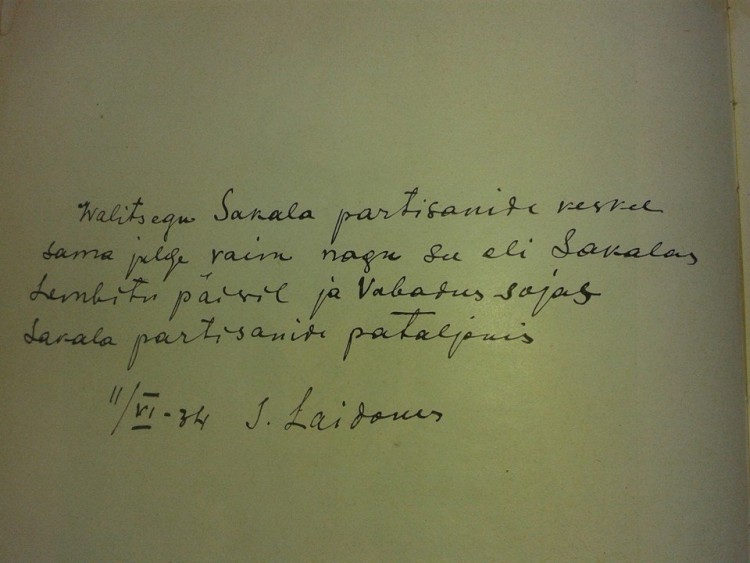 Walitsegu Sakala partisanide keskel
sama julge vaim nagu see oli Sakalas
Lembitu päivil ja Vabadus sojas
Sakala partisanide pataljonis
11/VI - 34 J. Laidoner